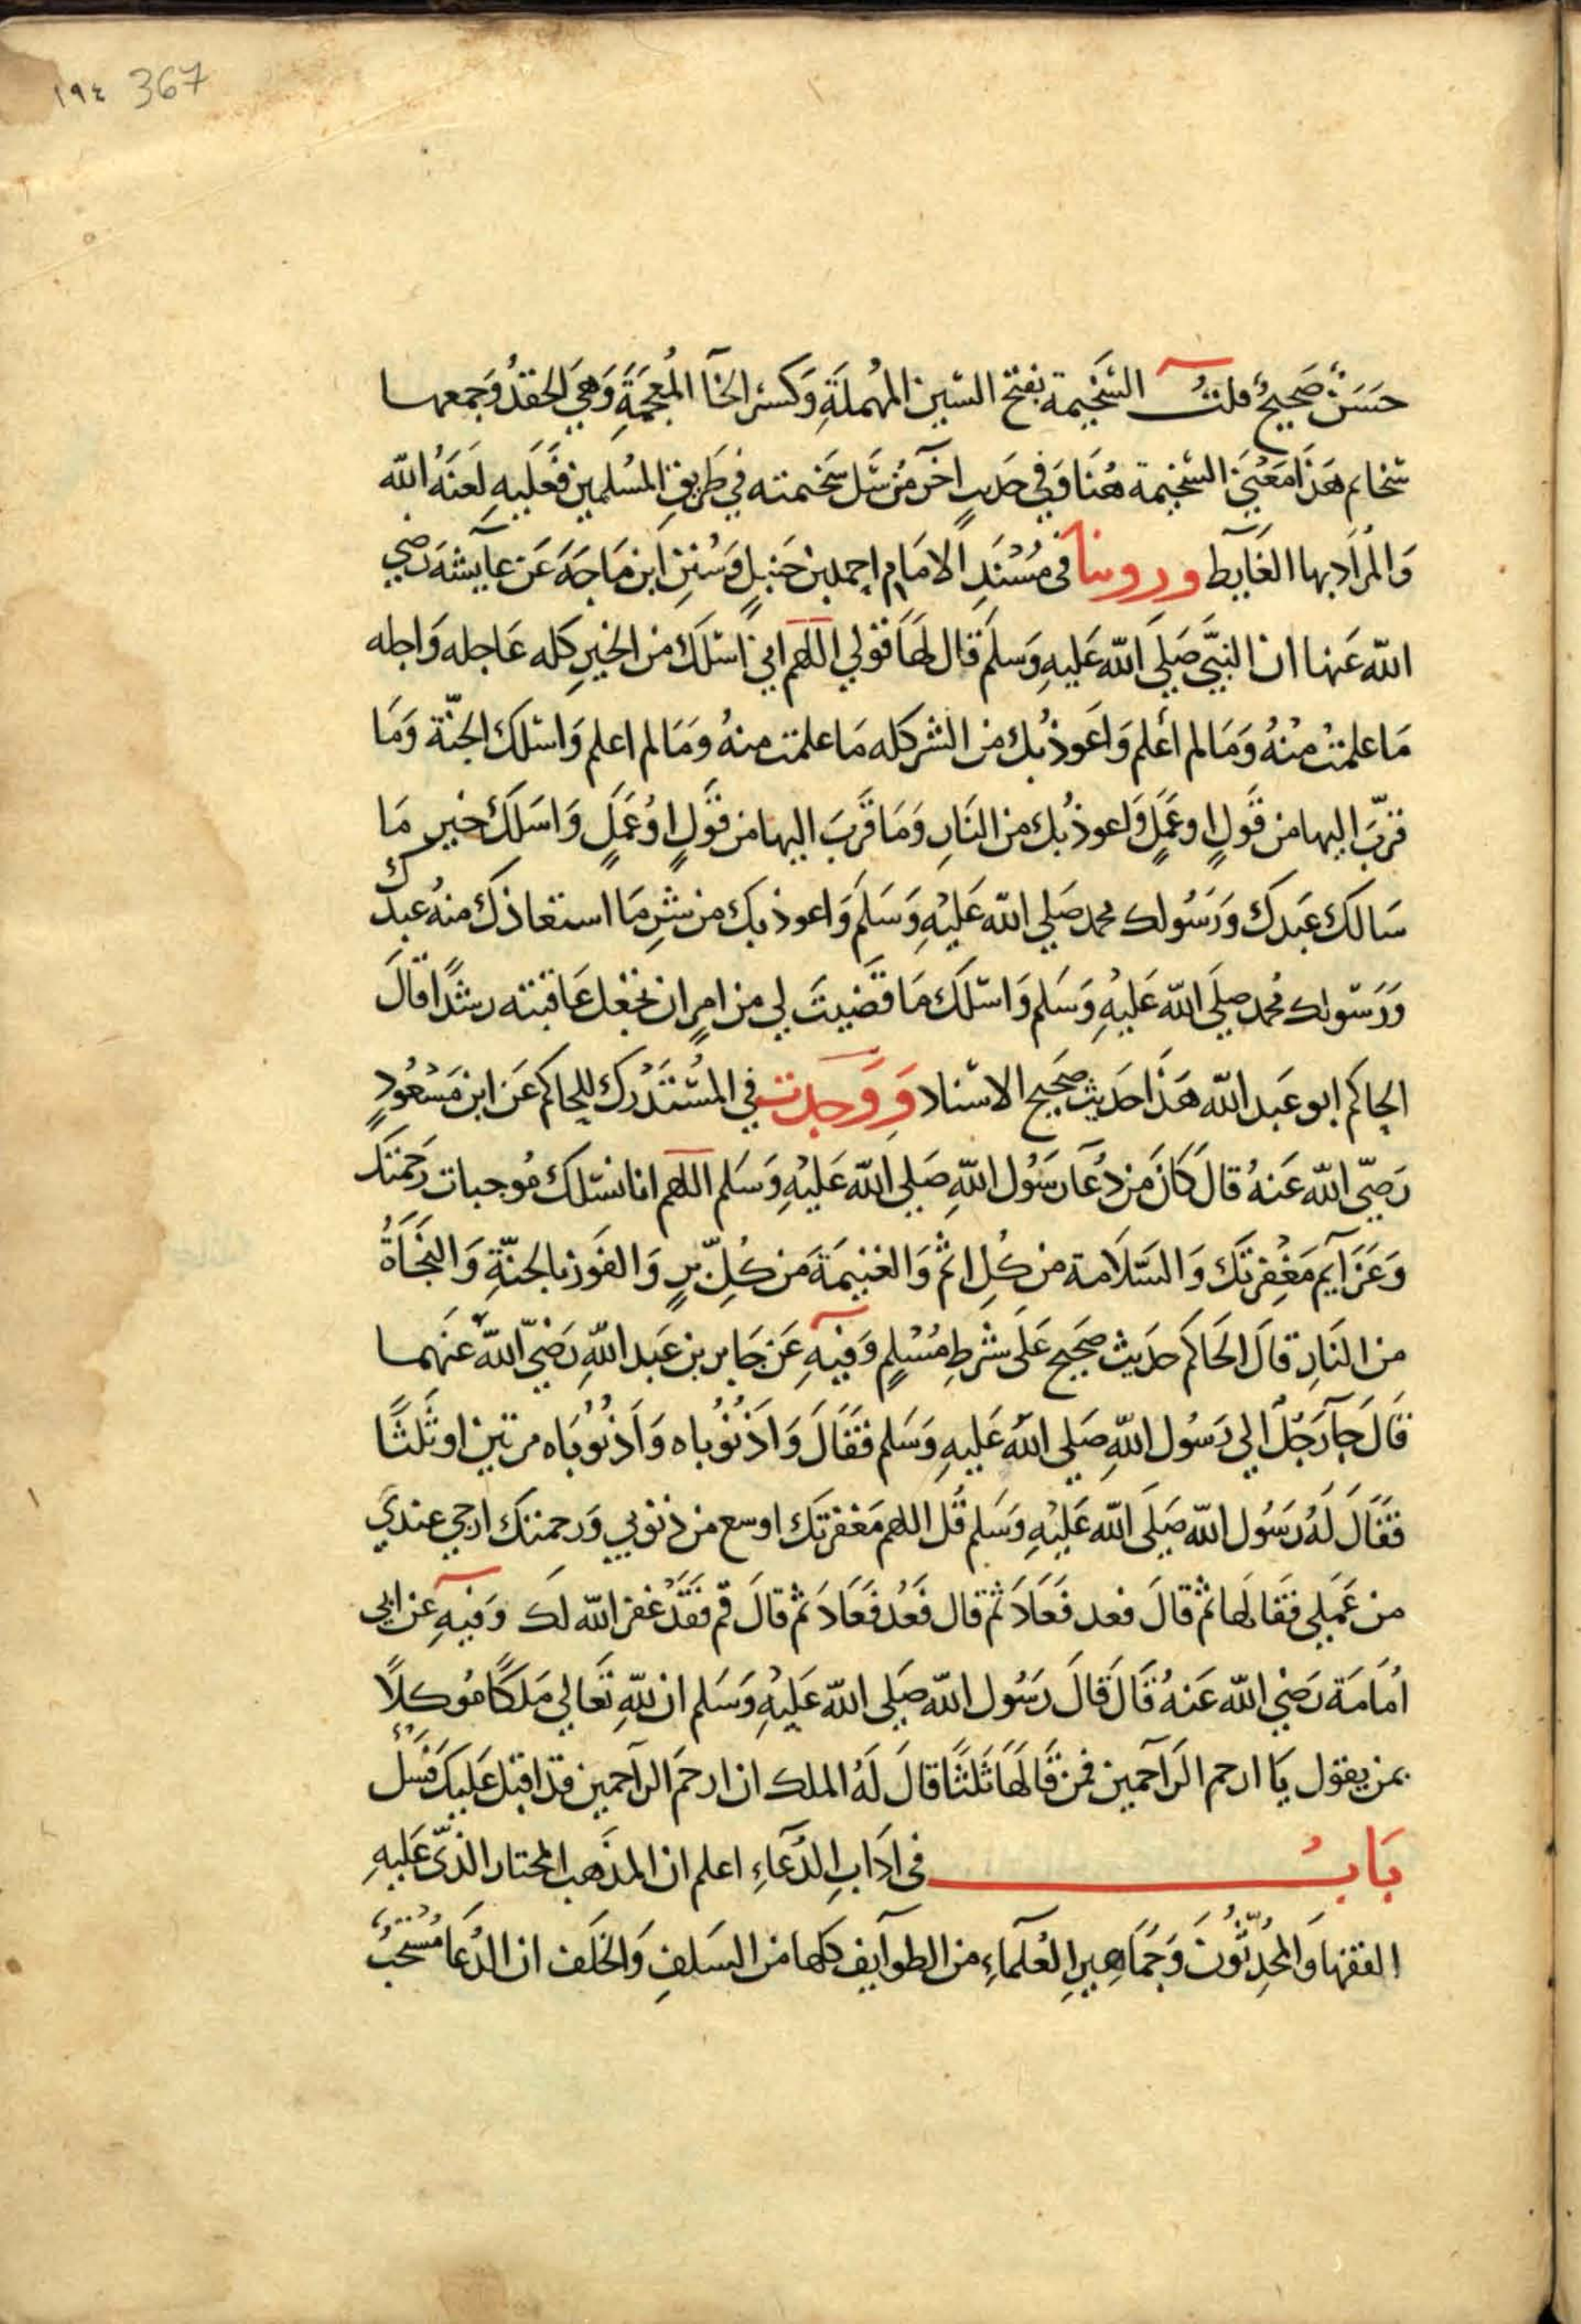 ١٩٤ 367
حَسَنٌ صَحِيحٌ قلتُ السَّخِيمة بفتح السّين المُهملَةِ وَكسْر الخآ المُعجَمَةِ وَهيَ الحقدُ وَجمعها
سَخايم هَذَا مَعْنَي السَّخِيمة هُنَا وَفي حَديثٍ اخَر مَنْ سَل سَخيمته في طَريقِ المُسْلمين فَعَلَيهِ لعَنَةُ الله
وَالمُرَادبها الغَآيط وروينا في مُسْنَدِ الامَام احمد بن حَنبلٍ وَسُنَنِ ابن مَاجَة عَن عآيشَة رَضي
الله عَنها ان النبيَّ صَلي الله عَليهِ وَسلَّم قال لهَا قولي اللهم اني اسْئلكَ من الخيرِ كله عَاجله وَاجله
مَا علمتْ منْهُ وَمَا لم أعلم وَاعَوذ بك من الشر كله مَا علمت منهُ وَمَا لم اعلم وَاسْئلكَ الجنّة وَمَا
قرّبَ اليها من قَولٍ او عَمَلٍ وَاعوذ بُك من النَارِ وَمَا قَرّبَ اليها من قَولٍ اوْ عَمَلٍ وَاسَلكَ خَير مَا
سَالكَ عَبَدكَ وَرَسُولك محمد صَلي الله عَليْهِ وَسَلم وَاعوذ بكَ من شرِ مَا استعاذكَ منهُ عبدك
وَرَسُولك محُمد صلي الله عَليهِ وَسَلم وَاسْئلكَ مَا قضَيتَ لي من امرٍ ان تجعل عَاقبته رشدًا قالَ
الحاكم ابو عَبد الله هَذَا حَديث صَحيح الاسْناد وَوَجدت في المُسْتَدْرك للحاكم عَن ابن مَسْعُودٍ
رَضيّ الله عَنهُ قالَ كانَ من دُعآ رَسُول اللهِ صَلي الله عَليْهِ وَسَلم اللهم انا نسْئلكَ مُوجبات رَحمتكَ
وَعَزَآيم مَغْفِرتكَ وَالسَّلَامة من كُلِ اثم وَالغنيمَةَ من كُلِّ برٍ وَالفَوز بالجنّةِ وَالنجَاةَ
من النَارِ قالَ الحَاكم حَديث صَحيح عَلَى شَرطِ مُسْلمٍ وَفيهِ عَن جَابر بن عَبد اللهِ رَضيّ الله عَنَهما
قالَ جآ رَجُلٌ الي رَسُول اللهِ صَلي الله عَليهِ وَسَلم فَقَالَ وَاذنُوباه وَاذنُوبَاه مرتين او ثَلثًا
فَقَالَ لَهُ رَسُول الله صَلَى الله عَليْهِ وَسَلم قُل اللهم مَغفرتكَ اوسع من ذنوبي وَرحمتك ارجي عندي
من عَمَلي فقَالها ثم قالَ فعد فَعَادَ ثم قال فَعُد فَعَادَ ثم قالَ قم فَقَدْ غفر الله لكَ وَفيهِ عن ابي
اُمَامَة رَضي الله عَنهُ قَالَ قالَ رَسُول الله صَلى الله عَليْهِ وَسَلم ان للهِ تعَالي مَلكًا مُوكلًا
بمن يقول يَا ارحم الرَآحمين فمن قَالهَا ثَلثًا قالَ لَهُ الملك ان ارحَم الرآحمين قد اقبل عَليكَ فَسَلْ
بَابُ في ادَابِ الدُعَآءِ اعلم ان المذهب المختار الذّي عَليهِ
الفقها وَالمحُدِثّونَ وَجمَاهِيرِ العُلمآءِ من الطوآيف كلها من السَلفِ وَالخَلَف ان الدُعَا مُسْتَحَبٌ